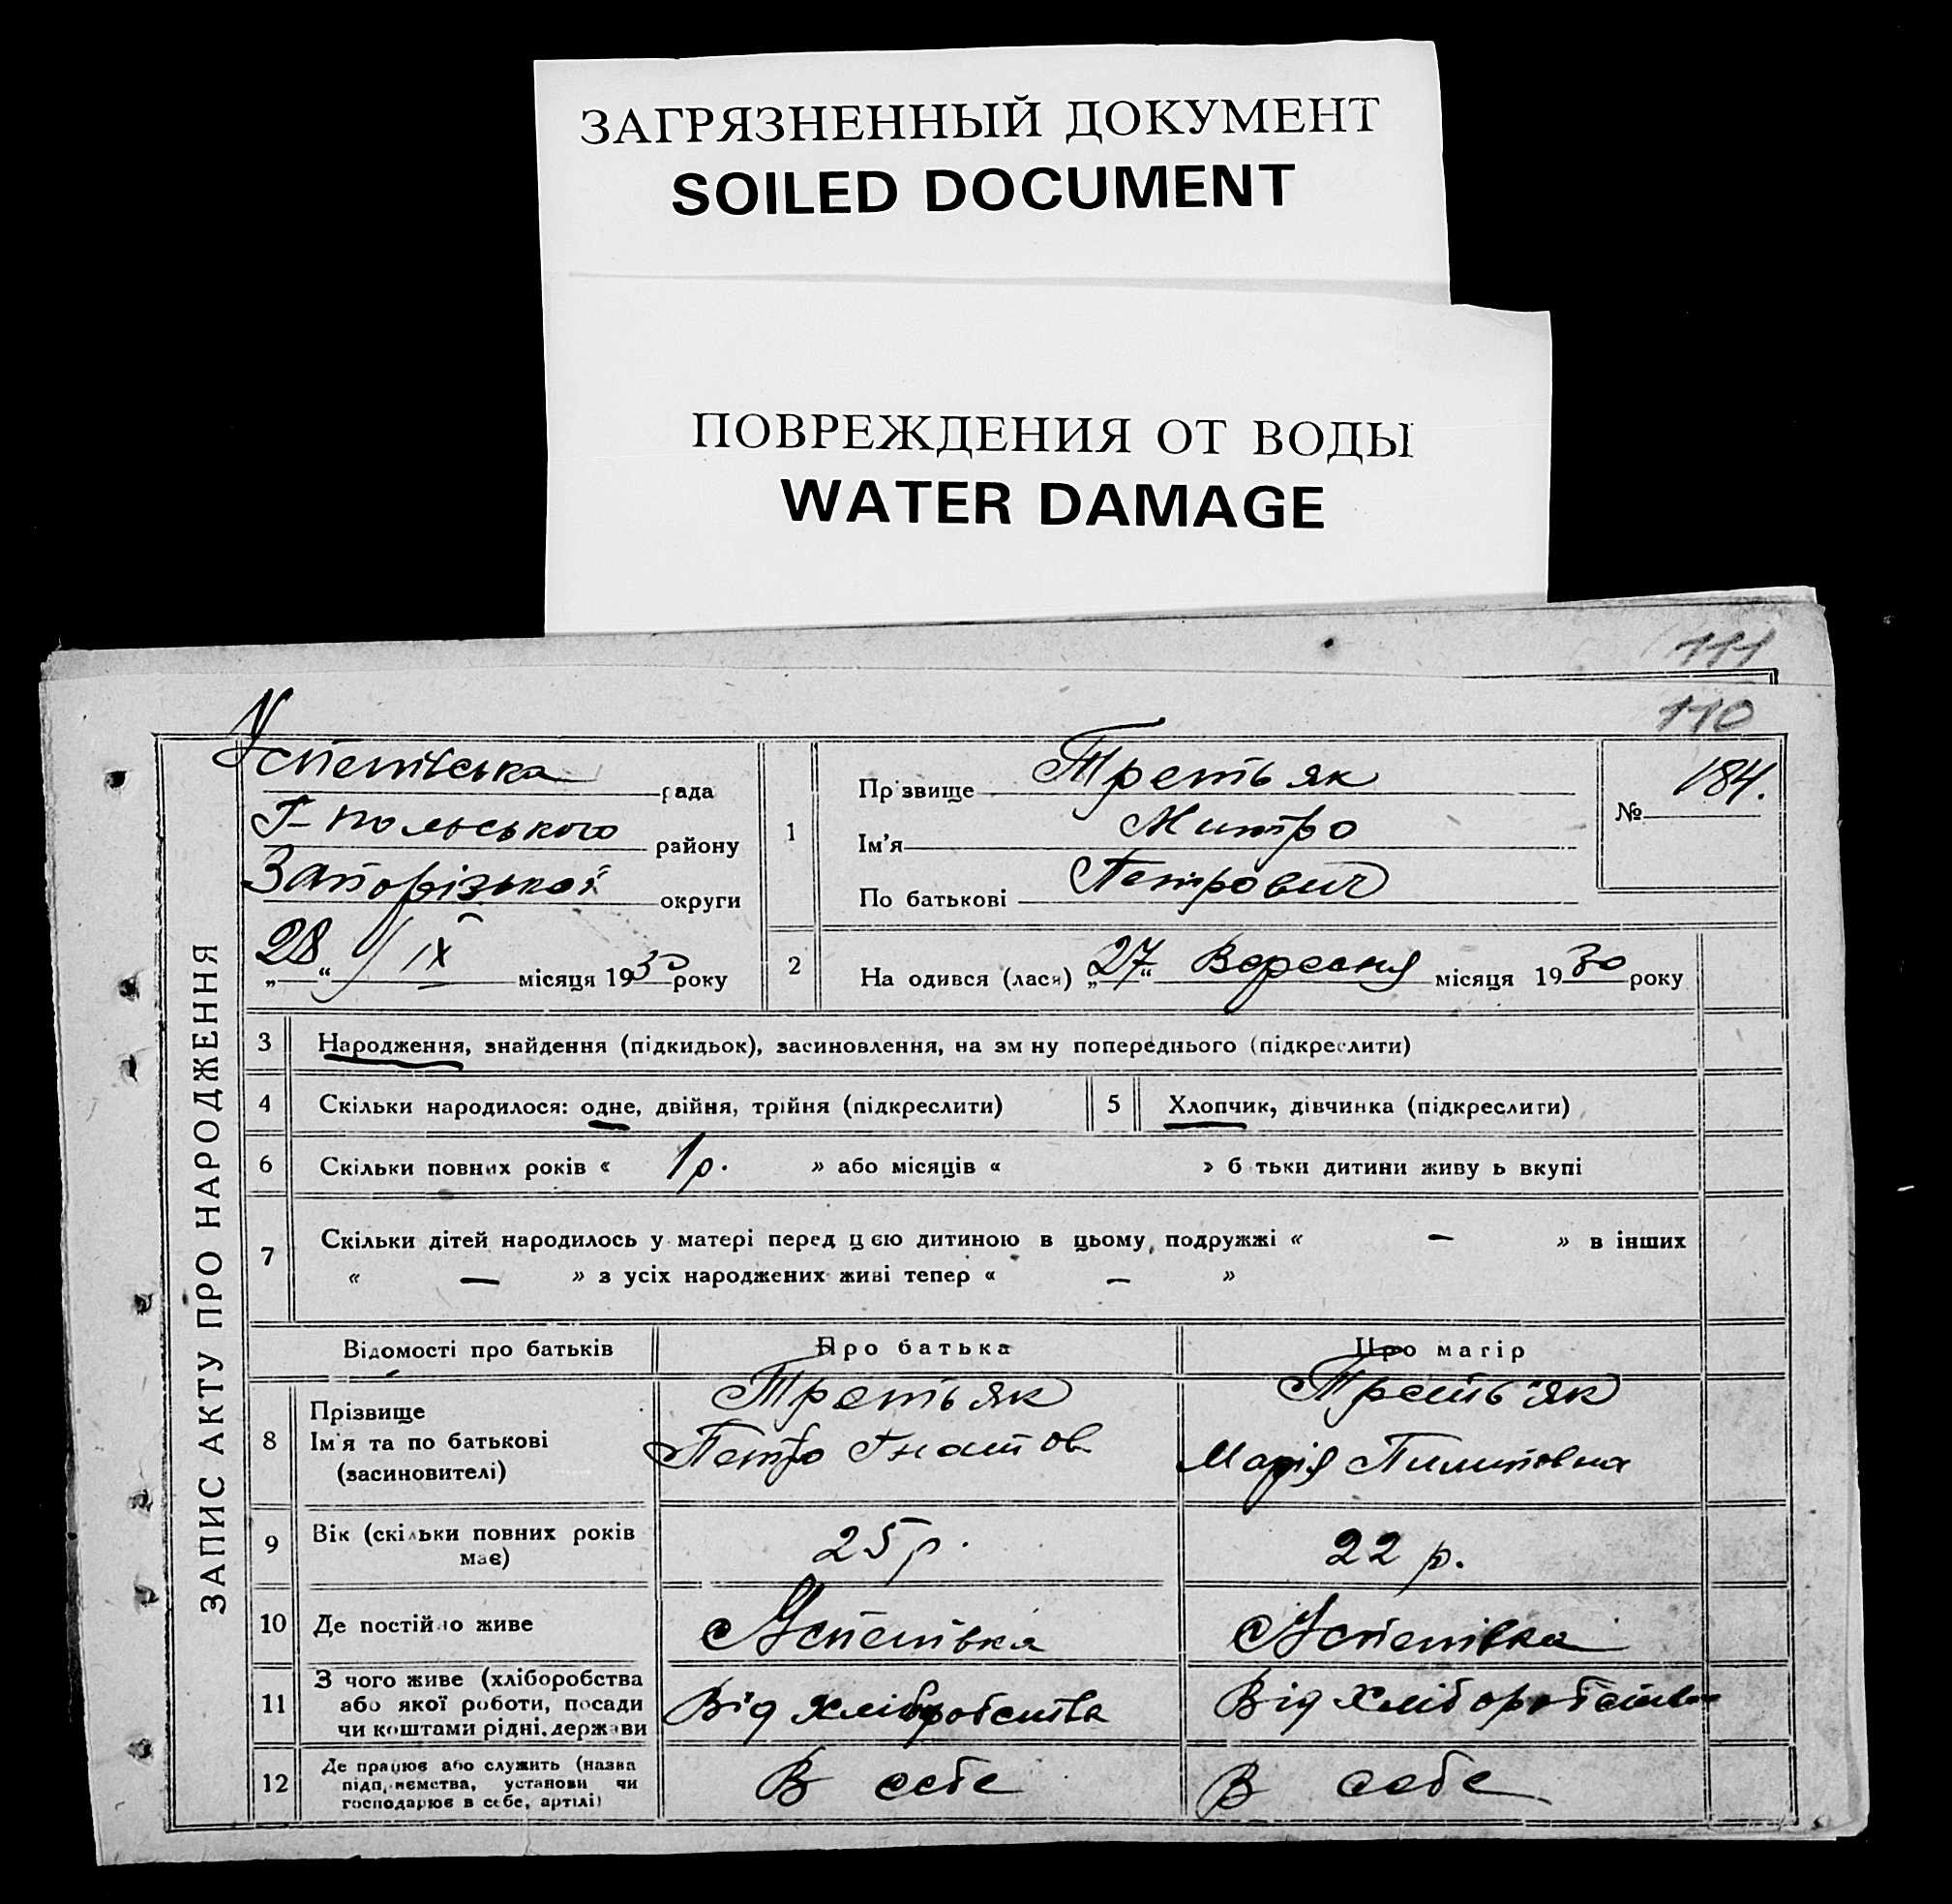 ЗАГРЯЗНЕННЫЙ ДОКУМЕНТ
SOILED DOCUMENT
ПОВРЕЖДЕНИЯ ОТ ВОДЫ
WATER DAMAGE
111
110
ЗАПИС АКТУ ПРО НАРОДЖЕННЯ
Успенівська рада
Г-Польського району
Запорізької округи
„28“ ІХ місяця 1930 року
1
Прізвище Третьяк
Ім'я Митро
По батькові Петрович
№ 184.
2 На одився (лася) „27“ Вересня місяця 1930 року
3 Народження, знайдення (підкидьок), засиновлення, на зм ну попереднього (підкреслити)
4 Скільки народилося: одне, двійня, трійня (підкреслити) 5 Хлопчик, дівчинка (підкреслити)
6 Скільки повних років « 1 р. » або місяців « » б тьки дитини живу ь вкупі
7 Скільки дітей народилось у матері перед цією дитиною в цьому подружжі « — » в інших
« — » з усіх народжених живі тепер « — »
Відомості про батьків Про батька Про матір
8 Прізвище Третьяк Треть'як
Ім'я та по батькові Петро Гнатов Марія Пилиповна
(засиновителі)
9 Вік (скільки повних років має) 25 р. 22 р.
10 Де постійно живе с Успенівка с Успенівка
11 З чого живе (хліборобства
або якої роботи, посади
чи коштами рідні, держави Від хліборобства Від хліборобства
12 Де працює або служить (назва
підприємства, установи чи
господарює в себе, артілі) В себе В себе